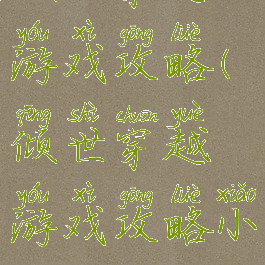 yóu xì gōng lüè
游戏攻略(
qīng shì chuān yuè
倾世穿越
yóu xì gōng lüè xiǎo
游戏攻略小